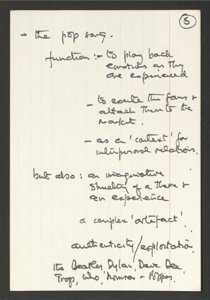 5
- the pop song.
function :- to play back
emotions as they
are experienced
- to excite the fans &
attach them to the
market.
- as a 'context' for
interpersonal relations.
but also : an imaginative
structuring of a theme &
an experience
a complex 'artefact'
authenticity/exploitation
the Beatles, Dylan, Dave Dee
Trogs, Who, Mamas & Poppas.